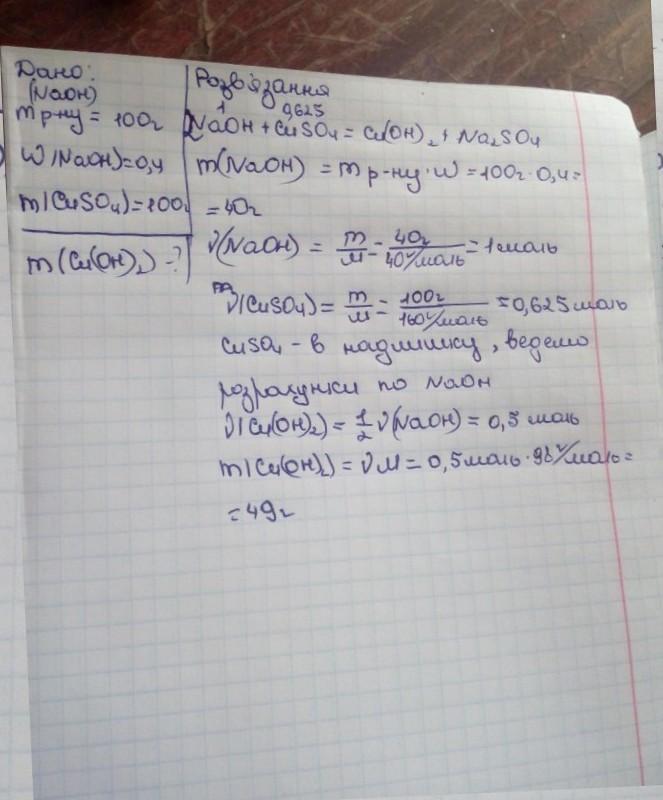 Дано:
(NaOH)
m р-ну = 100г
W(NaOH)=0,4
m(CuSO₄)=100г
m(Cu(OH)₂) -?
Розв'язання
1 0,625
2NaOH + CuSO₄ = Cu(OH)₂ + Na₂SO₄
m(NaOH) = m р-ну · W = 100г · 0,4 =
= 40г
ν(NaOH) = m/M = 40г/40г/моль = 1 моль
ν(CuSO₄) = m/M = 100г/160г/моль = 0,625 моль
CuSO₄ - в надлишку, ведемо
розрахунки по NaOH
ν(Cu(OH)₂) = 1/2 ν(NaOH) = 0,5 моль
m(Cu(OH)₂) = ν M = 0,5 моль · 98г/моль =
= 49г